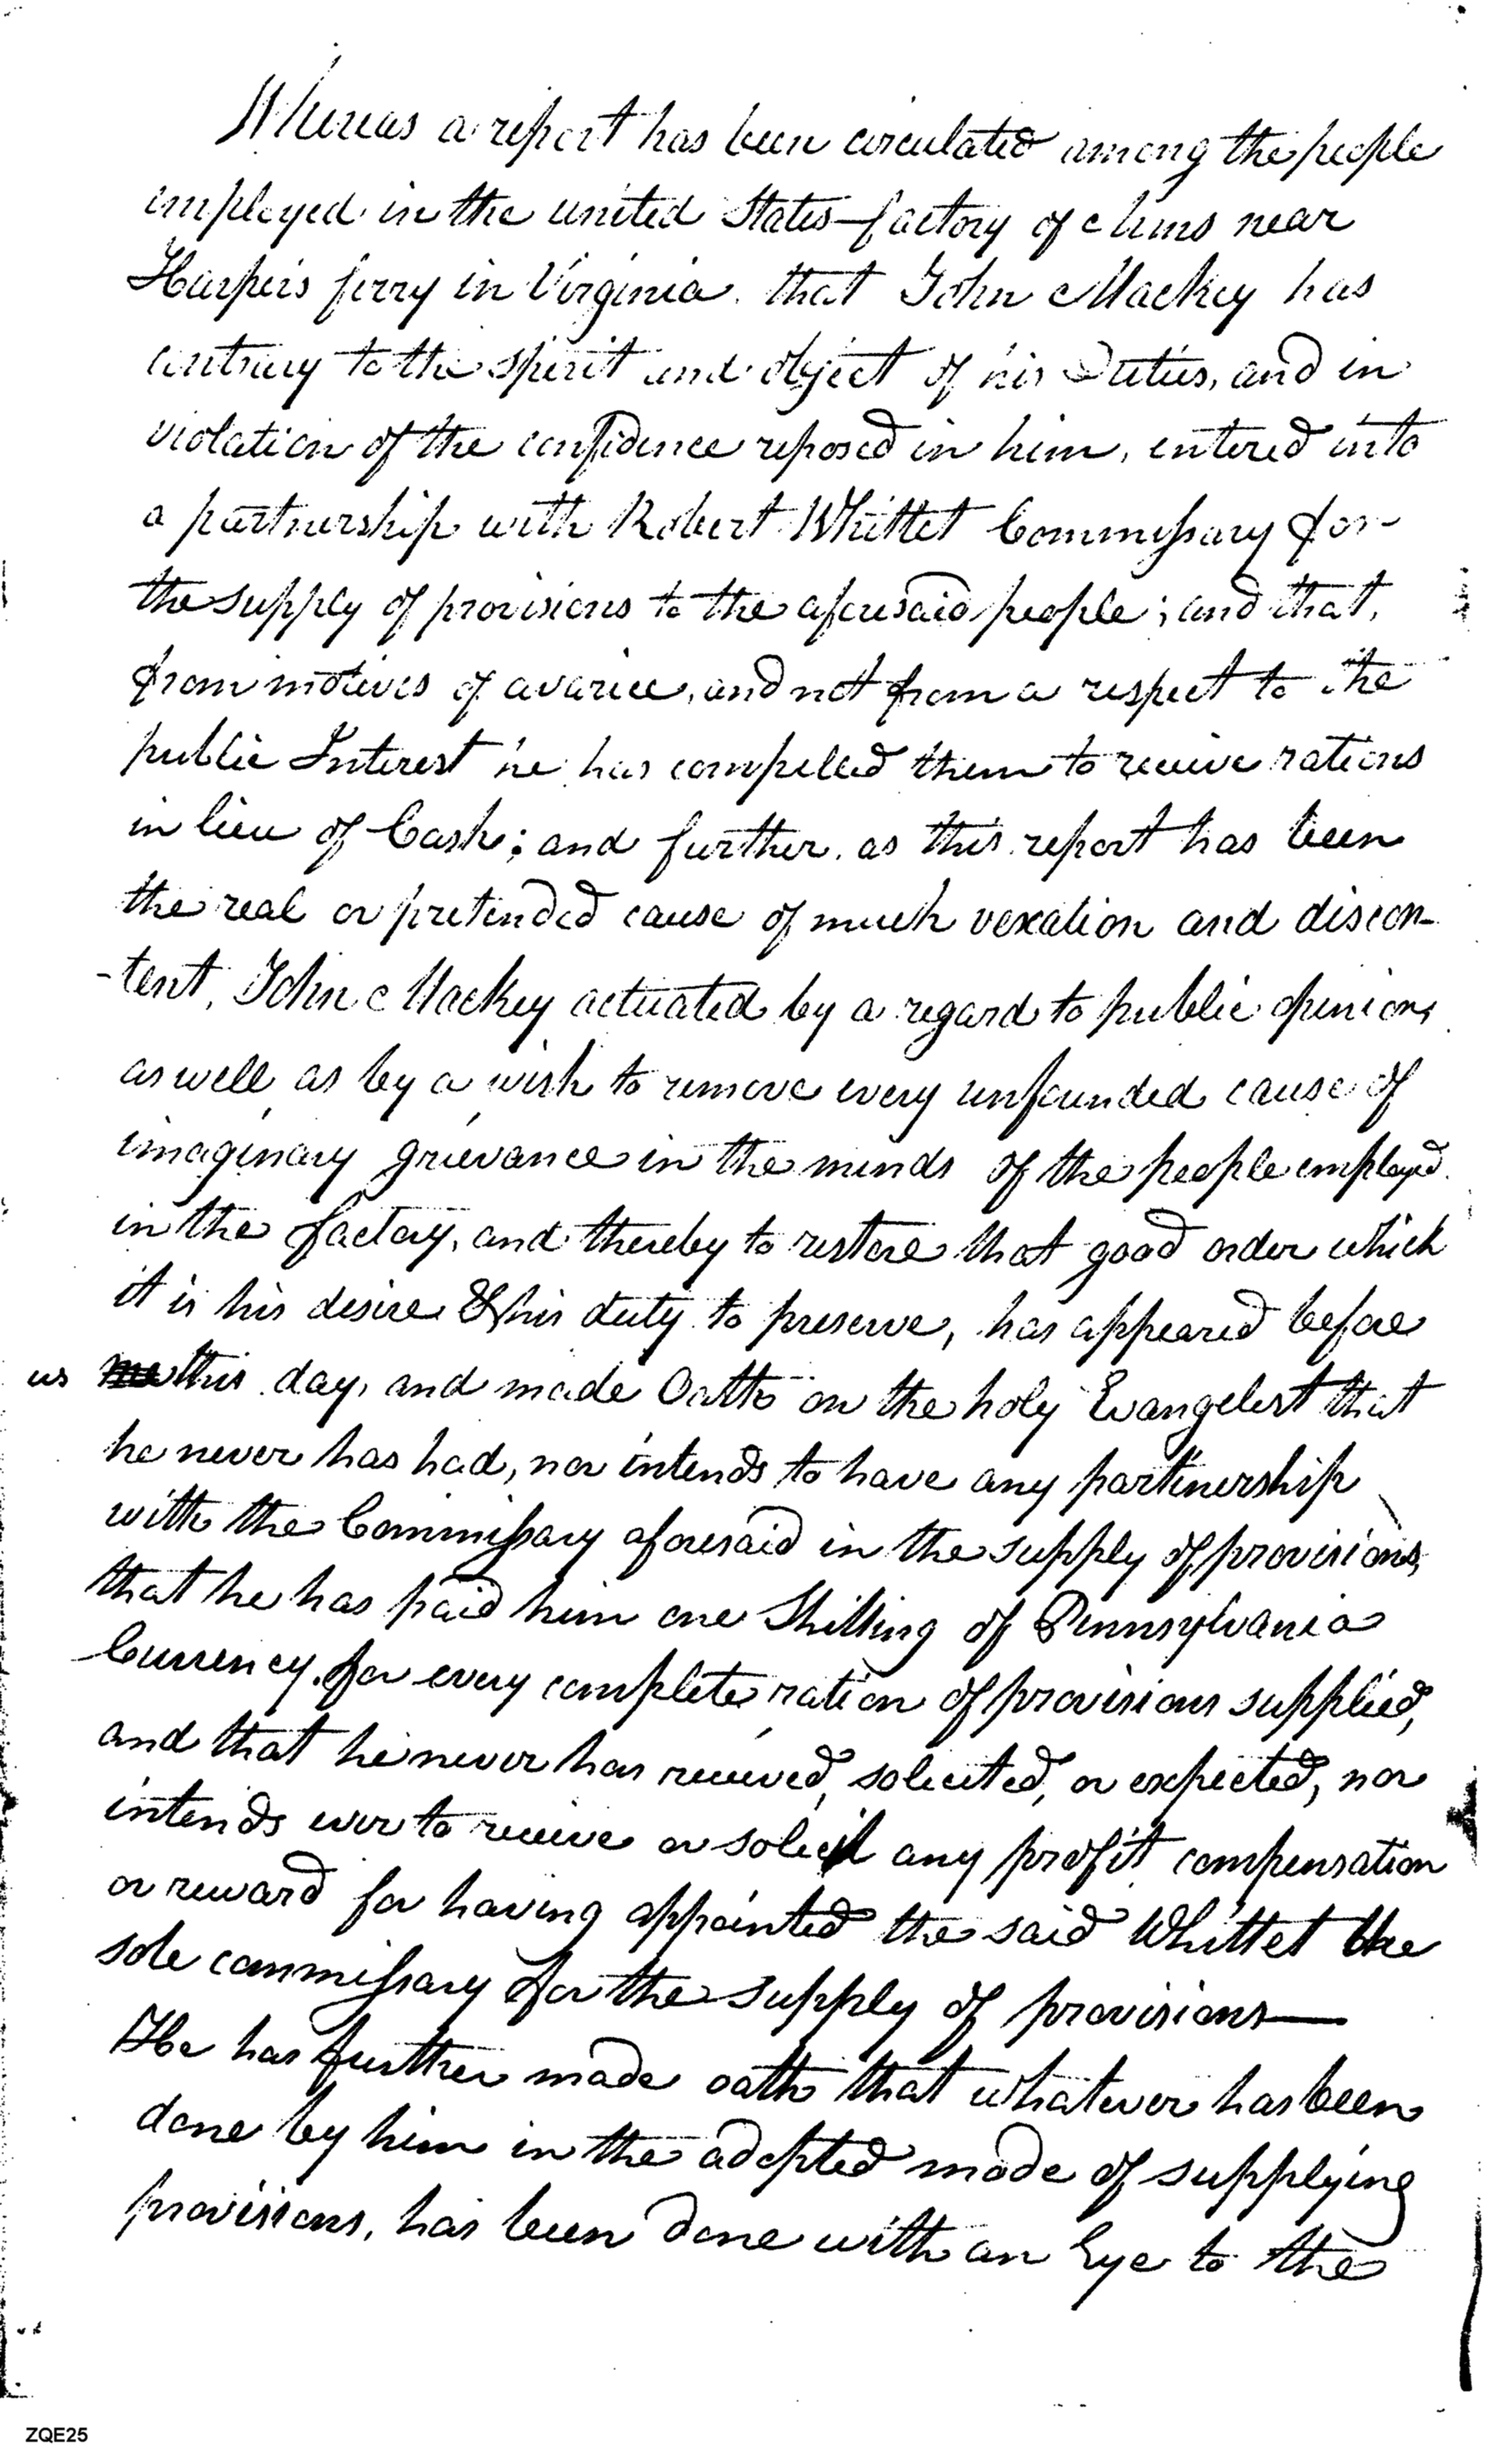 Whereas a report has been circulated among the people
employed in the united States factory of Arms near
Harpers ferry in Virginia that John Mackey has
contrary to the spirit and object of his Duties, and in
violation of the confidence reposed in him, entered into
a partnership with Robert Whittet Commissary for
the supply of provisions to the aforesaid people; and that,
from motives of avarice, and not from a respect to the
public Interest he has compelled them to receive rations
in lieu of Cash; and further as this report has been
the real or pretended cause of much vexation and discon-
-tent, John Mackey actuated by a regard to public opinion,
as well as by a wish to remove every unfounded cause of
imaginary grievance in the minds of the people employed
in the factory, and thereby to restore that good order which
it is his desire & his duty to preserve, has appeared before
us me this day, and made Oath on the holy Evangelist that
he never has had, nor intends to have any partinership
with the Commissary aforesaid in the supply of provisions,
that he has paid him one Shilling of Pennsylvania
Currency for every complete ration of provisions supplied,
and that he never has received, solicited, or expected, nor
intends ever to receive or solicit any profit compensation
or reward for having appointed the said Whittet the
sole commissary for the supply of provisions—
He has further made oath that whatever has been
done by him in the adopted mode of supplying
provisions, has been done with an Eye to the
ZQE25